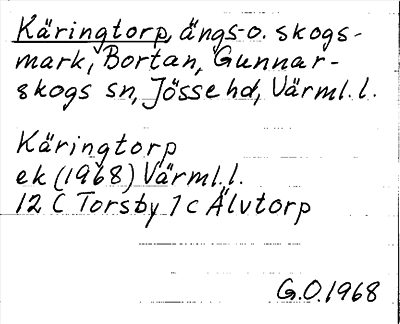 Käringtorp, ängs- o. skogs-
mark, Bortan, Gunnar-
skogs sn, Jösse hd, Värml. l.
Käringtorp
ek (1968) Värml. l.
12 C Torsby 1 c Älvtorp
G.O. 1968